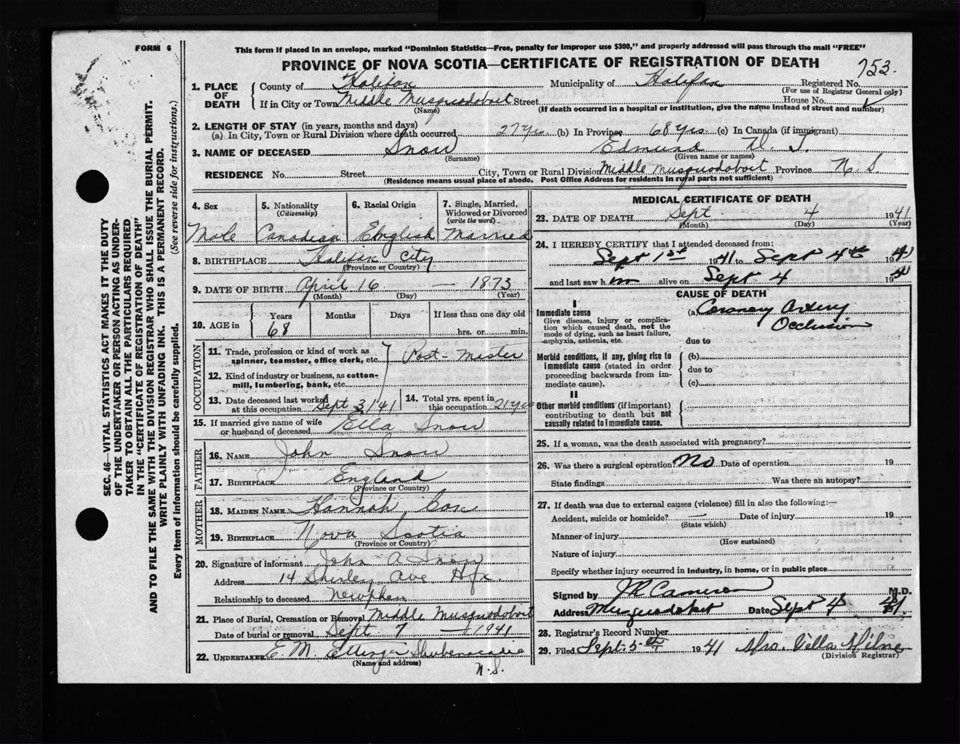 FORM 6
This form if placed in an envelope, marked "Dominion Statistics—Free, penalty for improper use $300," and properly addressed will pass through the mail "FREE"
PROVINCE OF NOVA SCOTIA—CERTIFICATE OF REGISTRATION OF DEATH
753.
1. PLACE OF DEATH
County of Halifax Municipality of Halifax Registered No.
(For use of Registrar General only)
If in City or Town Middle Musquodoboit Street House No.
(Name) (If death occurred in a hospital or institution, give the name instead of street and number)
2. LENGTH OF STAY (in years, months and days)
(a). In City, Town or Rural Division where death occurred 27 yrs. (b) In Province 68 yrs. (c) In Canada (if immigrant)
3. NAME OF DECEASED Snow Edmund
(Surname) (Given name or names)
RESIDENCE No. Street City, Town or Rural Division Middle Musquodoboit Province N. S
(Residence means usual place of abode. Post Office Address for residents in rural parts not sufficient)
4. Sex
Male
5. Nationality
(Citizenship)
Canadian
6. Racial Origin
English
7. Single, Married, Widowed or Divorced
(write the word)
Married
8. BIRTHPLACE Halifax City
(Province or Country)
9. DATE OF BIRTH April 16 — 1873
(Month) (Day) (Year)
10. AGE in
Years Months Days If less than one day old
68 hrs. or min.
OCCUPATION
11. Trade, profession or kind of work as spinner, teamster, office clerk, etc.
Post-Master
12. Kind of industry or business, as cotton-mill, lumbering, bank, etc.
13. Date deceased last worked at this occupation Sept 3/41
14. Total yrs. spent in this occupation 21 yrs
15. If married give name of wife or husband of deceased Ella Snow
FATHER
16. NAME John Snow
17. BIRTHPLACE England
(Province or Country)
MOTHER
18. MAIDEN NAME Hannah
19. BIRTHPLACE Nova Scotia
(Province or Country)
20. Signature of informant John A.
Address 14 Shirley Ave Hfx.
Relationship to deceased Nephew
21. Place of Burial, Cremation or Removal Middle Musquodoboit
Date of burial or removal Sept 7 — 1941
22. UNDERTAKER E. M. Shubenacadie
(Name and address)
N. S.
MEDICAL CERTIFICATE OF DEATH
23. DATE OF DEATH Sept 4 1941
(Month) (Day) (Year)
24. I HEREBY CERTIFY that I attended deceased from:
Sept 1st 1941 to Sept 4th 1941
and last saw him alive on Sept 4 1941
CAUSE OF DEATH
I
Immediate cause
Give disease, injury or complication which caused death, not the mode of dying, such as heart failure, asphyxia, asthenia, etc.
(a) Coronary Artery Occlusion
due to
Morbid conditions, if any, giving rise to immediate cause (stated in order proceeding backwards from immediate cause).
(b)
due to
(c)
II
Other morbid conditions (if important) contributing to death but not causally related to immediate cause.
25. If a woman, was the death associated with pregnancy?
26. Was there a surgical operation? No Date of operation 19
State findings Was there an autopsy?
27. If death was due to external causes (violence) fill in also the following:
Accident, suicide or homicide? Date of injury 19
(State which)
Manner of injury
(How sustained)
Nature of injury
Specify whether injury occurred in industry, in home, or in public place
Signed by J R Cameron M.D.
Address Musquodoboit Date Sept 4 41
28. Registrar's Record Number
29. Filed Sept. 5th 1941 Mrs. Vella Milne
(Division Registrar)
SEC. 46—VITAL STATISTICS ACT MAKES IT THE DUTY
OF THE UNDERTAKER OR PERSON ACTING AS UNDER-
TAKER TO OBTAIN ALL THE PARTICULARS REQUIRED
IN THE "CERTIFICATE OF REGISTRATION OF DEATH"
AND TO FILE THE SAME WITH THE DIVISION REGISTRAR WHO SHALL ISSUE THE BURIAL PERMIT.
WRITE PLAINLY WITH UNFADING INK. THIS IS A PERMANENT RECORD.
Every item of information should be carefully supplied. (See reverse side for instructions.)